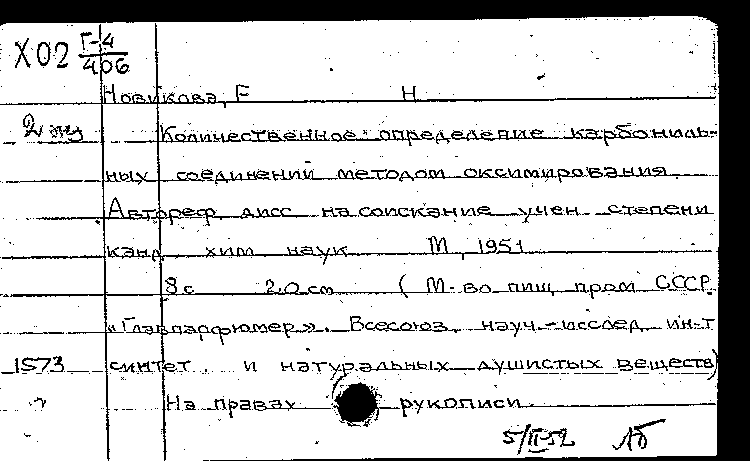 Х02 Г-4
406
Новикова, Е Н
2 эку
Количественное определение карбониль-
ных соединений методом оксимирования.
Автореф дисс на соискание учен степени
канд хим наук М, 1951
8 с 20 см (М-во пищ пром СССР
«Главпарфюмер». Всесоюз. науч-исслед. ин-т
1573 синтет. и натуральных душистых веществ)
На правах рукописи
5/II-52 АБ